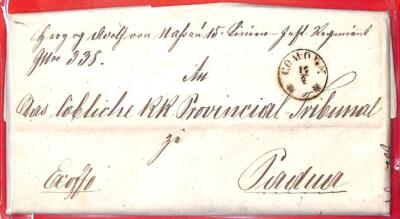 Herzog Adolf von Nassau 15. Linien Inft Regiment
No 338.
COMORN
12
4
An
Das löbliche KK Provincial Tribunal
zu
Exoffo
Padua